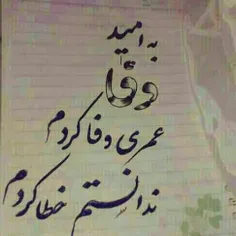 به امید
وفا
عمری وفا کردم
ندانستم خطا کردم